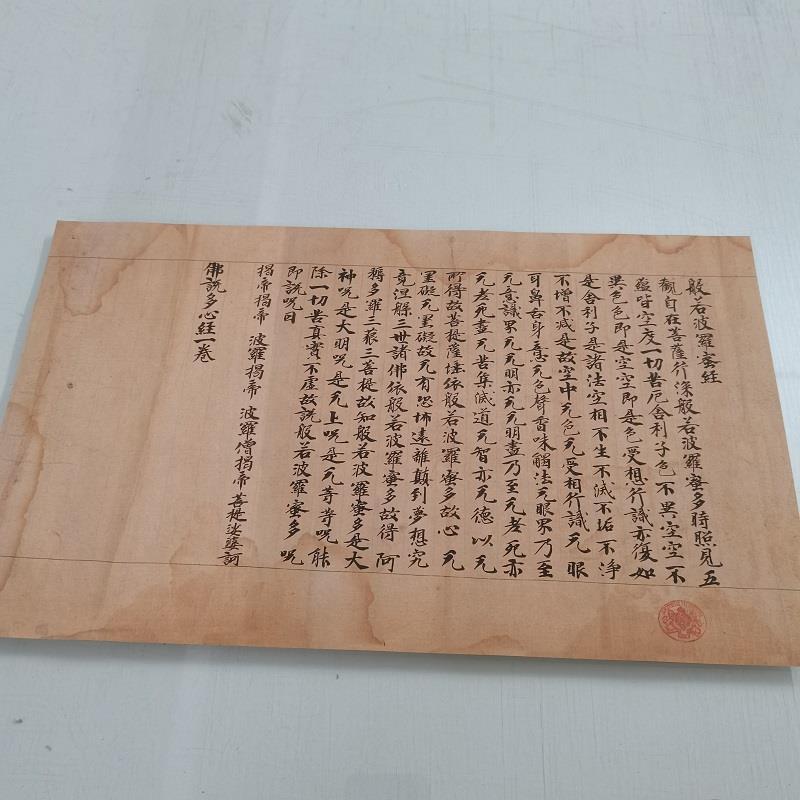 般若波羅蜜經
觀自在菩薩行深般若波羅蜜多時照見五
蘊皆空度一切苦厄舍利子色不異空空不
異色色即是空空即是色受想行識亦復如
是舍利子是諸法空相不生不滅不垢不淨
不增不減是故空中无色无受想行識无眼
耳鼻舌身意无色聲香味觸法无眼界乃至
无意識界无无明亦无无明盡乃至无老死亦
无老死盡无苦集滅道无智亦无德以无
所得故菩提薩埵依般若波羅蜜多故心无
罣礙无罣礙故无有恐怖遠離顛到夢想究
竟涅槃三世諸佛依般若波羅蜜多故得阿
耨多羅三藐三菩提故知般若波羅蜜多是大
神呪是大明呪是无上呪是无等等呪能
除一切苦真實不虛故說般若波羅蜜多呪
即說呪曰
揭帝揭帝 波羅揭帝 波羅僧揭帝 菩提娑婆訶
佛說多心經一卷